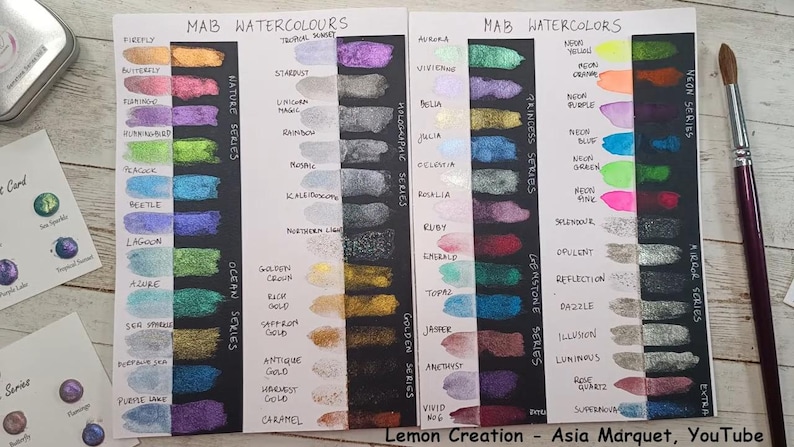 MAB WATERCOLOURS
FIREFLY
BUTTERFLY
FLAMINGO
HUMMINGBIRD
PEACOCK
BEETLE
LAGOON
AZURE
SEA SPARKLE
DEEP BLUE SEA
PURPLE LAKE
NATURE SERIES
OCEAN SERIES
TROPICAL SUNSET
STARDUST
UNICORN
MAGIC
RAINBOW
MOSAIC
KALEIDOSCOPE
NORTHERN LIGHT
GOLDEN
CROWN
RICH
GOLD
SAFFRON
GOLD
ANTIQUE
GOLD
HARVEST
GOLD
CARAMEL
HOLOGRAPHIC SERIES
GOLDEN SERIES
MAB WATERCOLORS
AURORA
VIVIENNE
BELIA
JULIA
CELESTIA
ROSALIA
RUBY
EMERALD
TOPAZ
JASPER
AMETHYST
VIVID
No6
PRINCESS SERIES
GEMSTONE SERIES
EXTRA
NEON
YELLOW
NEON
ORANGE
NEON
PURPLE
NEON
BLUE
NEON
GREEN
NEON
PINK
SPLENDOUR
OPULENT
REFLECTION
DAZZLE
ILLUSION
LUMINOUS
ROSE
QUARTZ
SUPERNOVA
NEON SERIES
MIRROR SERIES
EXTRA
Card
Sea Sparkle
Purple Lake
Tropical Sunset
Series
Flamingo
Butterfly
Lemon Creation - Asia Marquet, YouTube